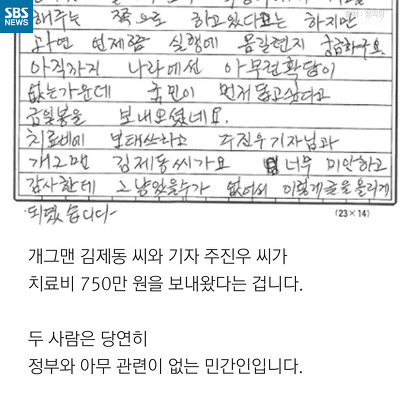 SBS
NEWS
해주는 쪽으로 하고있다고는 하지만
과연 언제쯤 실행에 옮길런지 궁금하구요.
아직까지 나라에선 아무런확답이
없는가운데 국민이 먼저 돕고싶다고
금일봉을 보내오셨네요.
치료비에 보태쓰라고 주진우기자님과
개그맨 김제동씨가요 너무 미안하고
감사한데 그냥있을수가 없어서 이렇게글을올리게
되었습니다-
(23×14)
개그맨 김제동 씨와 기자 주진우 씨가
치료비 750만 원을 보내왔다는 겁니다.
두 사람은 당연히
정부와 아무 관련이 없는 민간인입니다.